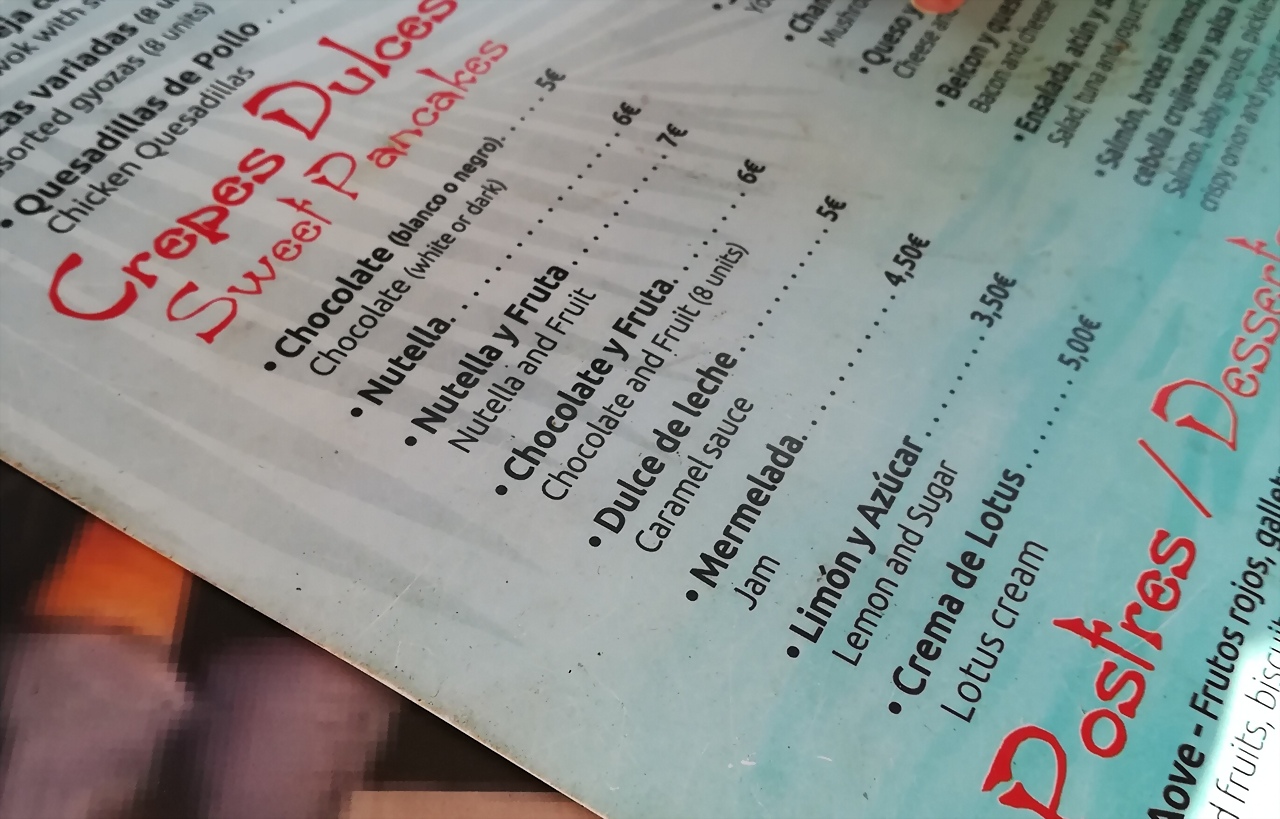 wok with
zas variadas (8 u
ssorted gyozas (8 units)
• Quesadillas de Pollo ...
Chicken Quesadillas
Crepes Dulces
Sweet Pancakes
• Chocolate (blanco o negro)..... 5€
Chocolate (white or dark)
• Nutella.................... 6€
• Nutella y Fruta............ 7€
Nutella and Fruit
• Chocolate y Fruta.......... 6€
Chocolate and Fruit (8 units)
• Dulce de leche............. 5€
Caramel sauce
• Mermelada............... 4,50€
Jam
• Limón y Azúcar.......... 3,50€
Lemon and Sugar
• Crema de Lotus......... 5,00€
Lotus cream
• Queso y
Cheese a
• Bacon y que
Bacon and cheese
• Ensalada, atún y s
Salad, tuna and yogurt
• Salmón, brotes tiernos
cebolla crujiente y salsa
Salmon, baby sprouts, pickles
crispy onion and yogur
Postres / Dessert
Move - Frutos rojos, gallet
d fruits, biscuit